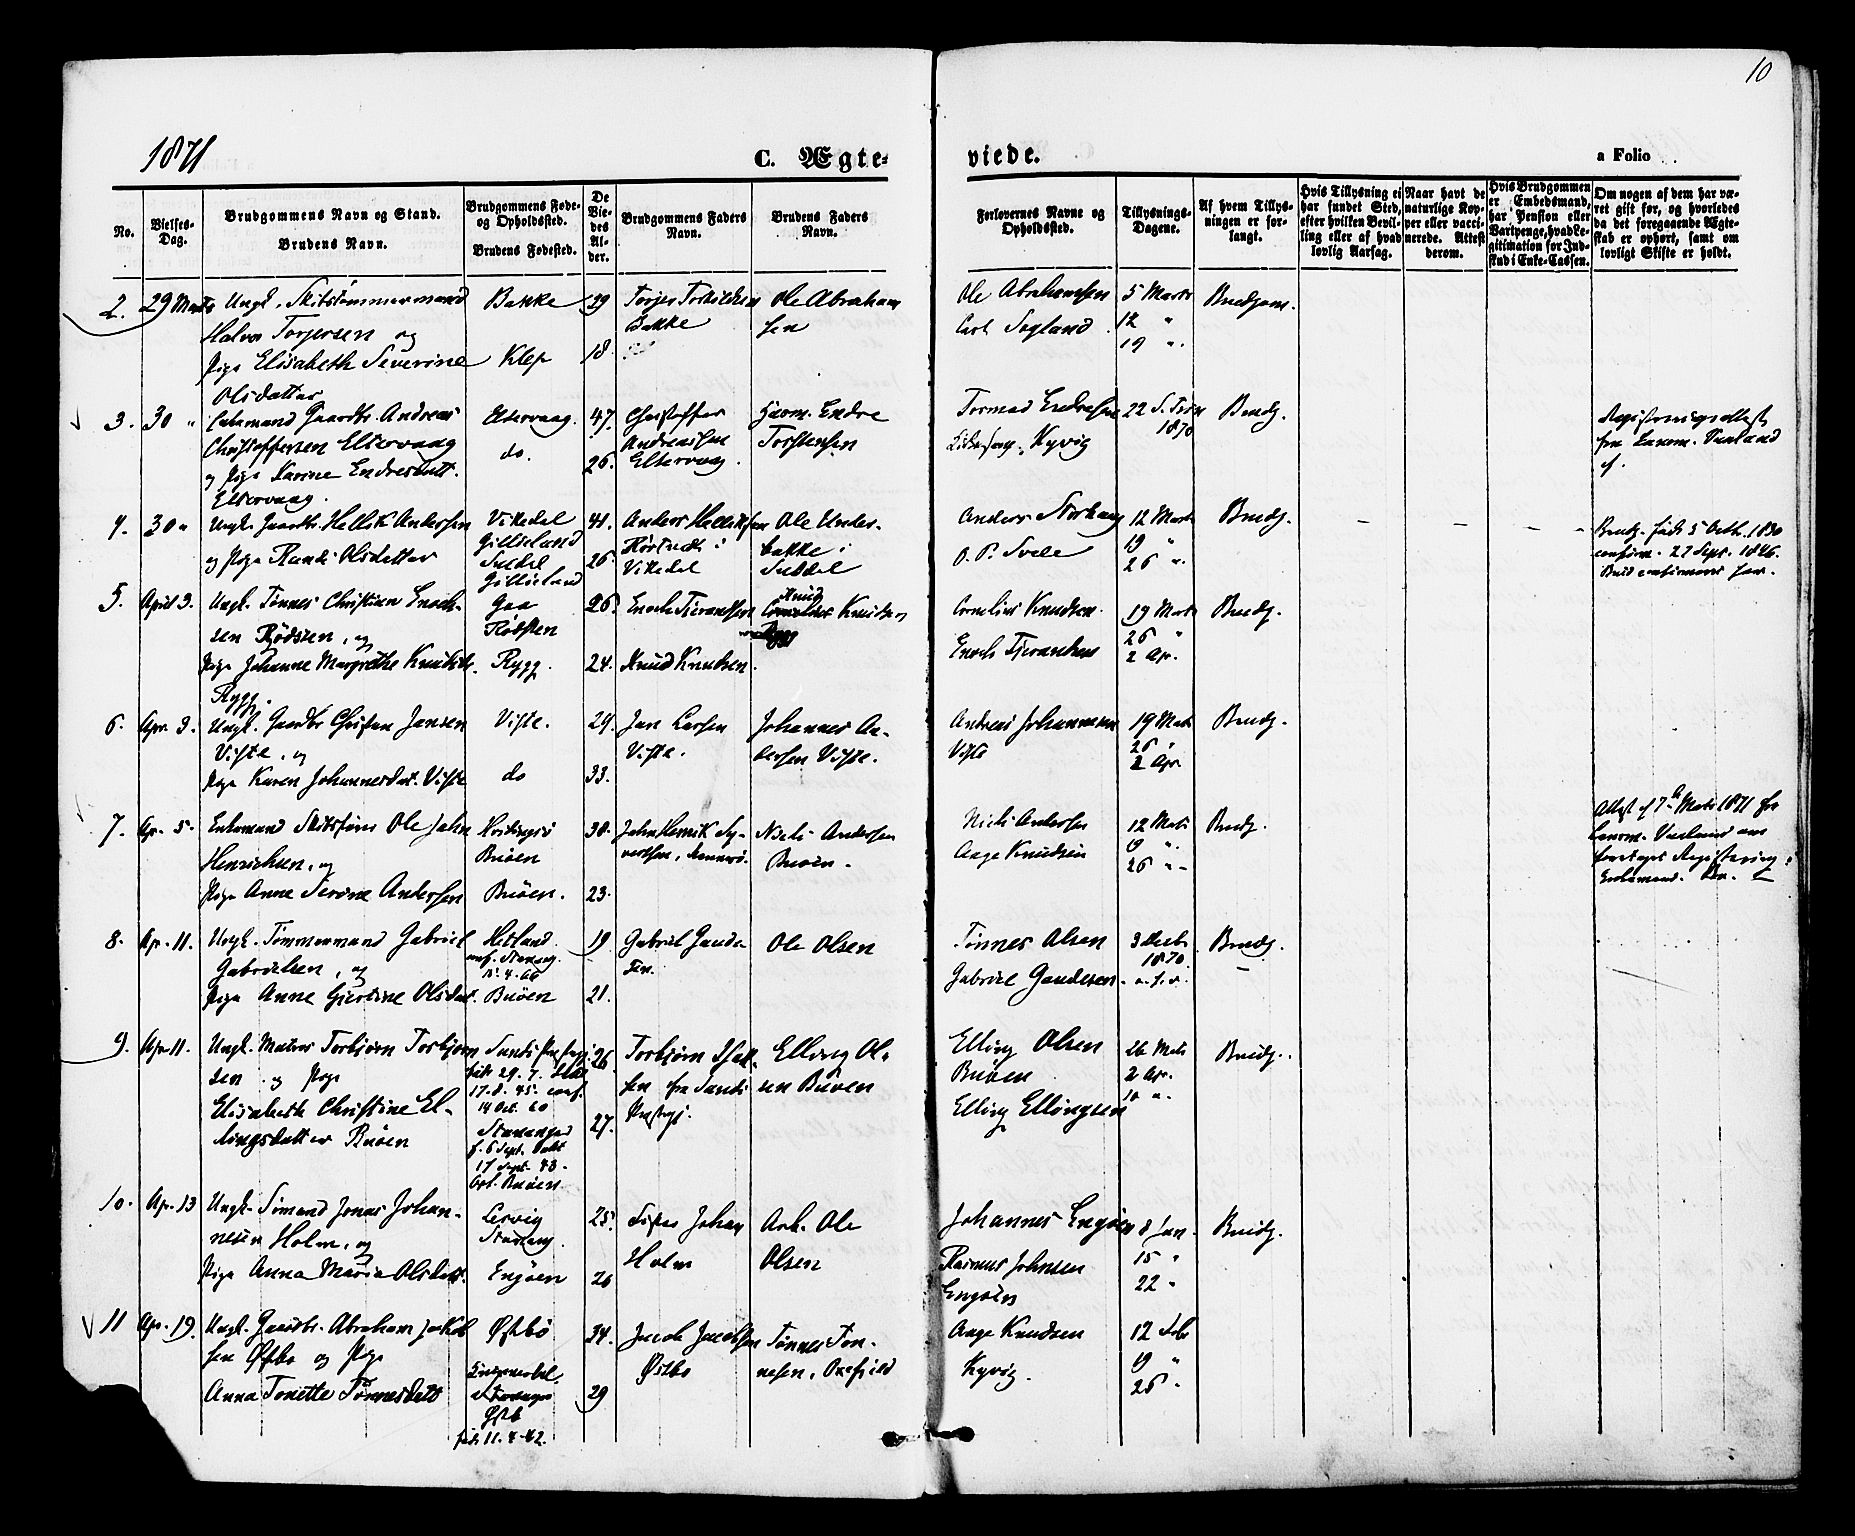 10
1871
C. Ægte-
viede.
a Folio
No.
Vielses-Dag.
Brudgommens Navn og Stand.
Brudens Navn.
Brudgommens Føde- og Opholdssted.
Brudens Fødested.
De Viedes Alder.
Brudgommens Faders Navn.
Brudens Faders Navn.
Forlovernes Navne og Opholdssted.
Tillysnings-Dagene.
Af hvem Tillysningen er forlangt.
Hvis Tillysning ei har fundet Sted, efter hvilken Bevilling eller af hvad lovlig Aarsag.
Naar havt de naturlige Kopper eller vaccinerede. Attest derom.
Hvis Brudgommen er Embedsmand, har Pension eller Vartpenge, hvad Legitimation for Indskud i Enke-Cassen.
Om nogen af dem har været gift før, og hvorledes da det foregaaende Ægteskab er ophørt, samt om lovligt Skifte er holdt.
2. 29 Marts Ungk. Skibstømmermand Bakke 29 Torjer Torkildsen Ole Abraham Ole Abrahamsen 5 Marts Brudgom.
Halvor Torjersen og Bakke sen Carl Sogland 12 "
Pige Elisabeth Severine Klep 18. 19 "
Olsdatter
3. 30 " Enkemand Gaardbr. Andreas Eltervaag. 47. Christoffer Gaarm. Endre Tormod Endresen 22 S. Trin Brudg.
Christoffersen Eltervaag do. Andreassen Torstensen Kyvig 1870
og Pige Karine Endresdatt. 26. Eltervaag.
Eltervaag.
fra Lensm.
4. 30 " Ungk. Gaardbr. Hellik Andersen Vikedal 41. Anders Helliksen Ole Under- Anders Storhaug 12 Marts Brudg. Brudg. født 5 Octb. 1830
og Pige Randi Olsdatter 26. i bakke i O. P. Svele 19 " confirm. 27 Sept. 1846.
Suldal Vikedal Suldal 26 "
5. April 3. Ungk. Tønnes Christian Enoch- Gaa 26. Enoch Tjerandsen Knud Knudsen Cornelius Knudsen 19 Marts Brudg.
sen Rødsten, og Rødsten Rygg 26 "
Pige Johanne Margrethe Knudsdt. Rygg. 24. Knud Knudsen. Enoch Tjerandsen 2 Apr.
Rygg.
6. Apr. 3. Ungk. Gaardbr. Christian Jansen Viste. 29. Jan Larsen Johannes An- Andreas Johannessen 19 Marts Brudg.
Viste, og Viste. dersen Viste. Viste 26 "
Pige Karen Johannesdat. Viste do 33. 2 Apr
7. Ap. 5. Enkemand Skibsfører Ole John 30. John Henrik Sy- Niels Andersen Niels Andersen 12 Marts Brudg. Attest af 7de Marts 1871 fra
Henrichsen, og Buøen vertsen, Buøen. Aage Knudsen 19 " Lensm.
Pige Anne Serine Andersen Buøen. 23. 26 "
8. Ap. 11. Ungk. Tømmermand Gabriel Hetland 19 Gabriel Gaude- Ole Olsen Tønnes Olsen 3 Decbr Brudg.
Gabrielsen, og conf. Stavang. sen. 1870
Pige Anne Gjertine Olsdat. Buøen 21. Gabriel Gaudesen
9. Apr 11. Ungk. Matros Torbjørn Torbjørn- Sands Præstegj. 26 Torbjørn Isak- Elling Ol- Elling Olsen 26 Marts Brudg.
sen og Pige født 29. 7. sen fra Sands sen Buøen Buøen 2 Ap.
Elisabeth Christine El- 17. 8. 45. conf. Præstegj. Elling Ellingsen 10 "
lingsdatter Buøen 14 Oct. 60
Stavanger 27.
f. 6 Sept. Døbt
17 Sept. 43
Opt. Buøen.
10. Ap. 13 Ungk. Sømand Jonas Johan- Lervig 25. Johan Arb. Ole Johannes Engøen 8 Jan. Brudg.
nesen Holm, og Stavang. Holm Olsen Rasmus Johnsen 15 "
Pige Anna Maria Olsdatt. Engøen 26 Engøen 22 "
11 Apr. 19. Ungk. Gaardbr. Abraham Jakob- Østbø 34. Jacob Jacobsen Tønnes Tøn- Aage Knudsen 12 Feb Brudg.
sen Østbø og Pige Østbø nesen, Kyvig. 19 "
Anna Tonette Tønnesdatt 29 26 "
født 11. 4. 42.